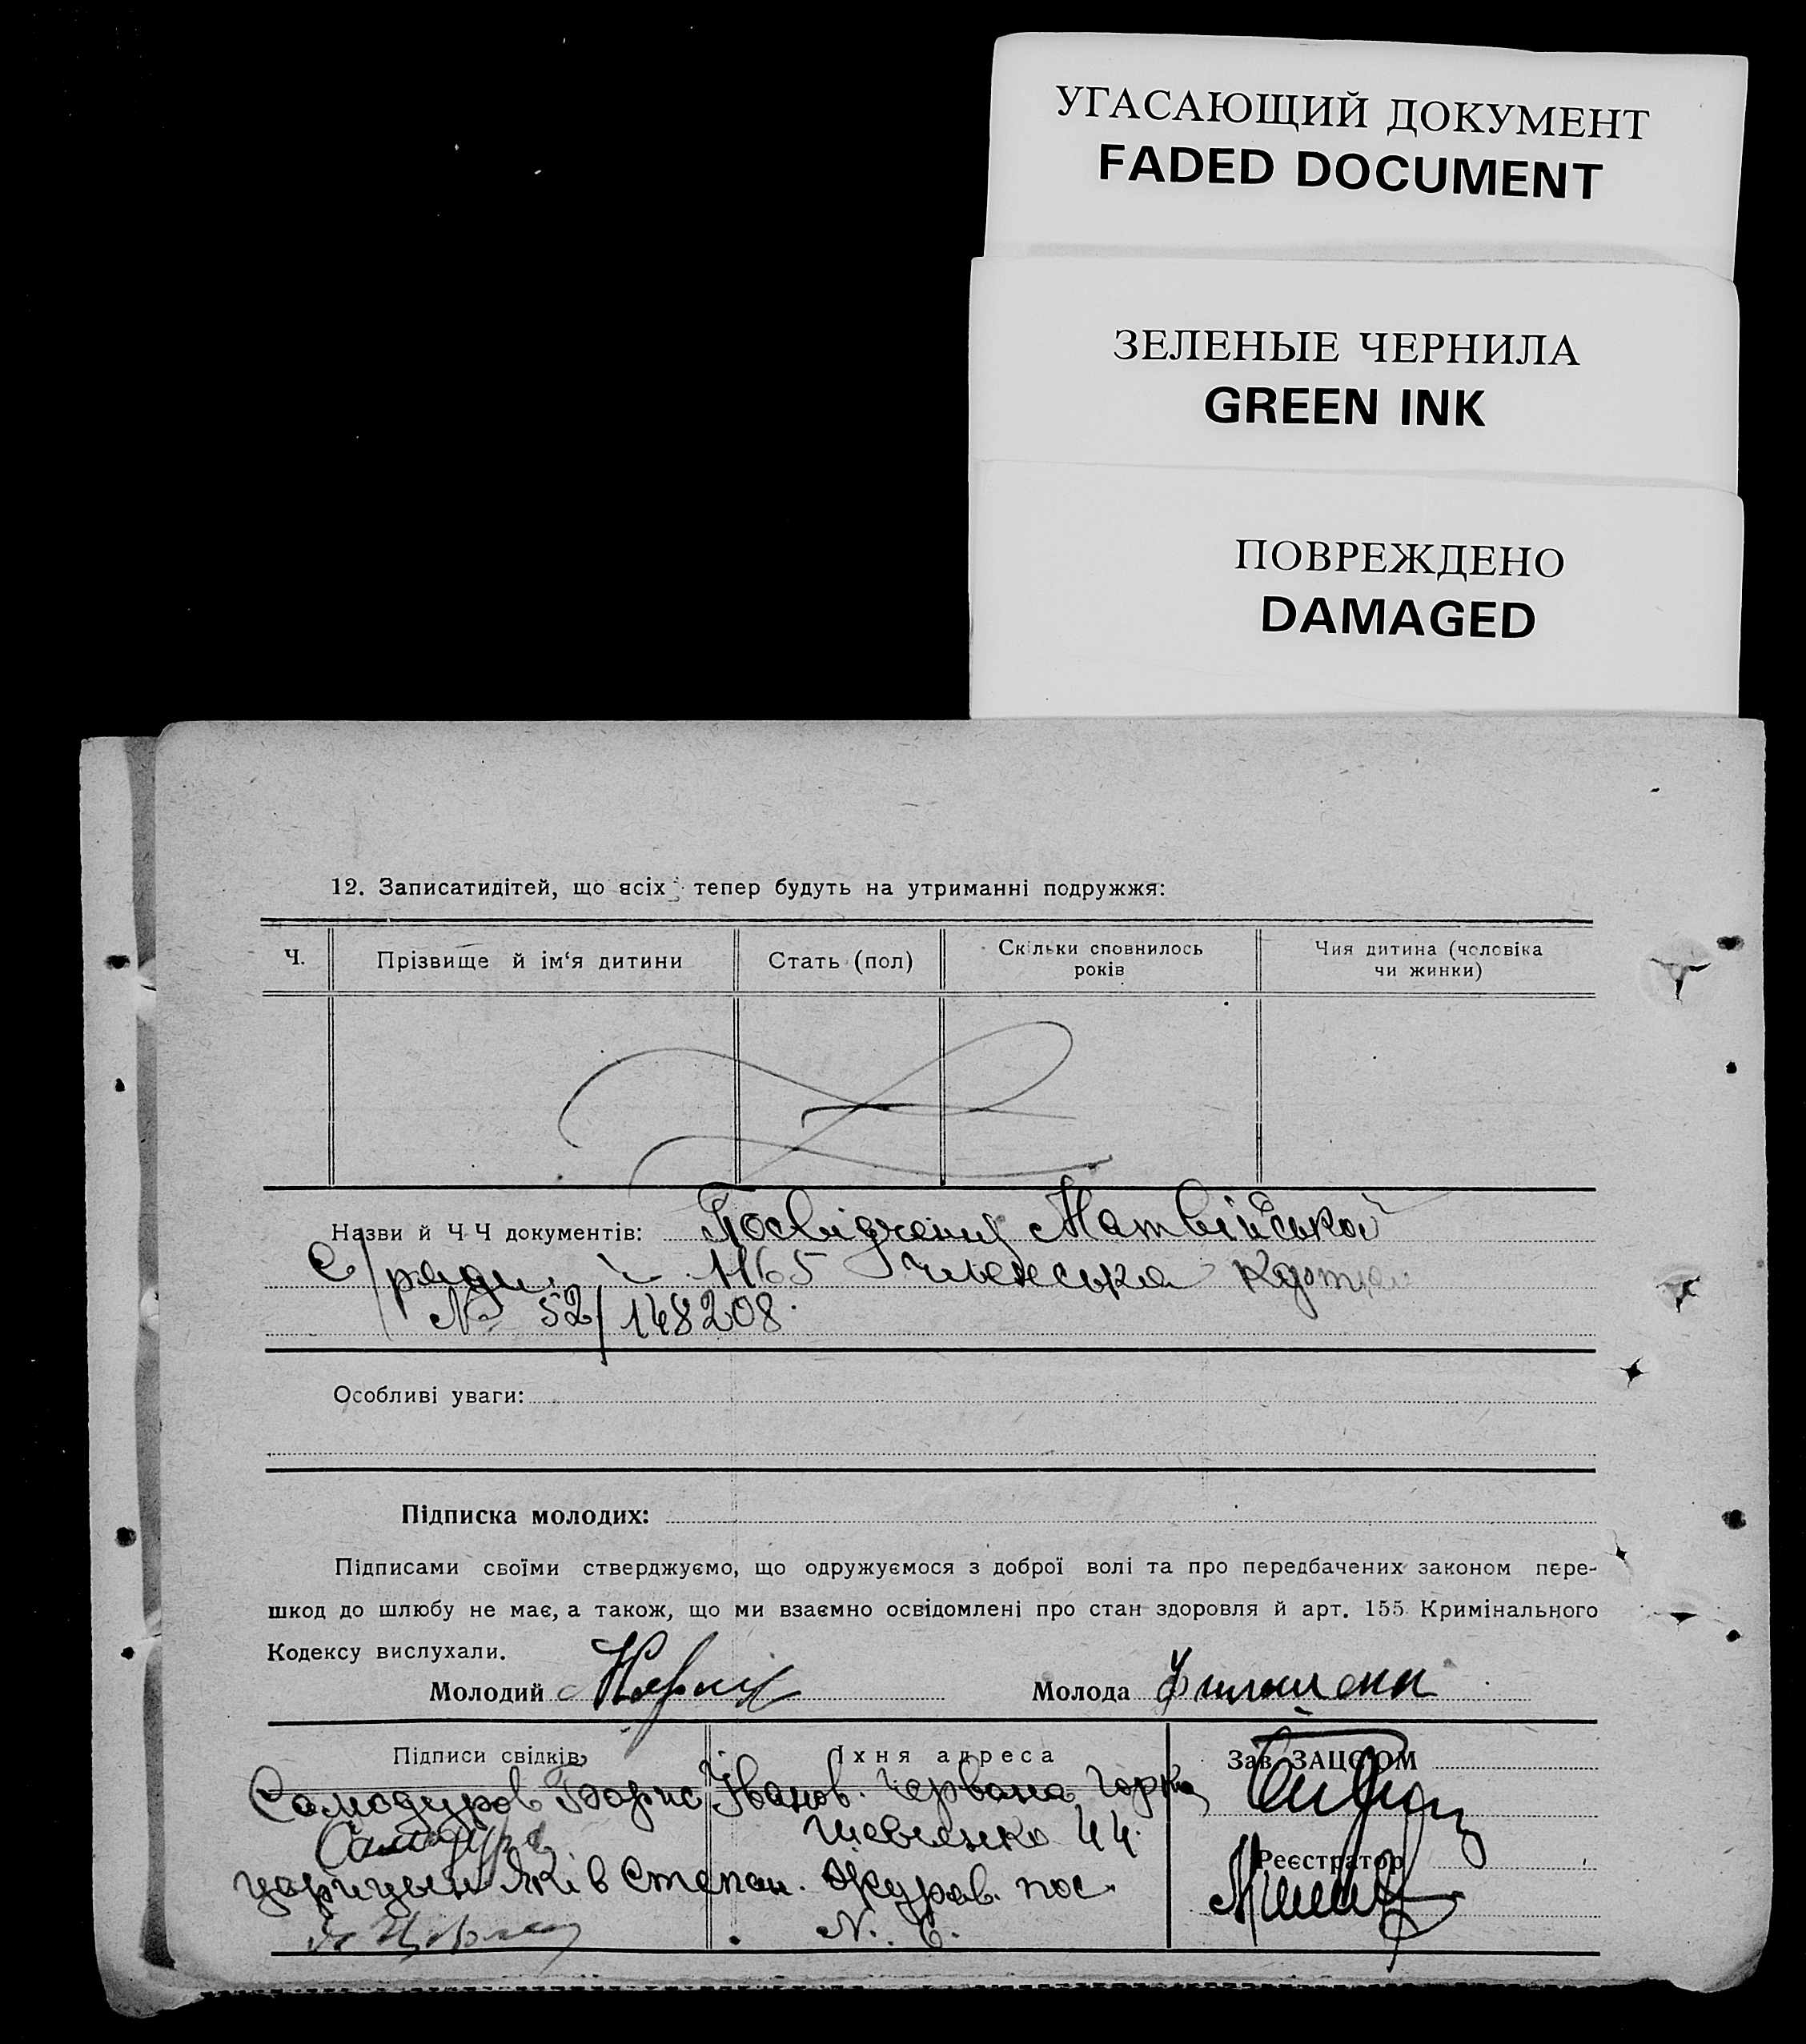 УГАСАЮЩИЙ ДОКУМЕНТ
FADED DOCUMENT
ЗЕЛЕНЫЕ ЧЕРНИЛА
GREEN INK
ПОВРЕЖДЕНО
DAMAGED
12. Записатидітей, що всіх тепер будуть на утриманні подружжя:
Ч.
Прізвище й ім‘я дитини
Стать (пол)
Скільки сповнилось
років
Чия дитина (чоловіка
чи жинки)
Назви й Ч Ч документів: Посвідчення Матвійської
с/ради ч. 1165 Членська картка
№ 52/148208.
Особливі уваги:
Підписка молодих:
Підписами своїми стверджуємо, що одружуємося з доброї волі та про передбачених законом пере-
шкод до шлюбу не має, а також, що ми взаємно освідомлені про стан здоровля й арт. 155 Кримінального
Кодексу вислухали.
Молодий
Молода
Підписи свідків
Їхня адреса
Зав. ЗАЦСОМ
Самодуров Борис Іванов. Червона Горка
Шевченко 44.
Реєстратор
Царицын Яків Степан. Журав. пос.